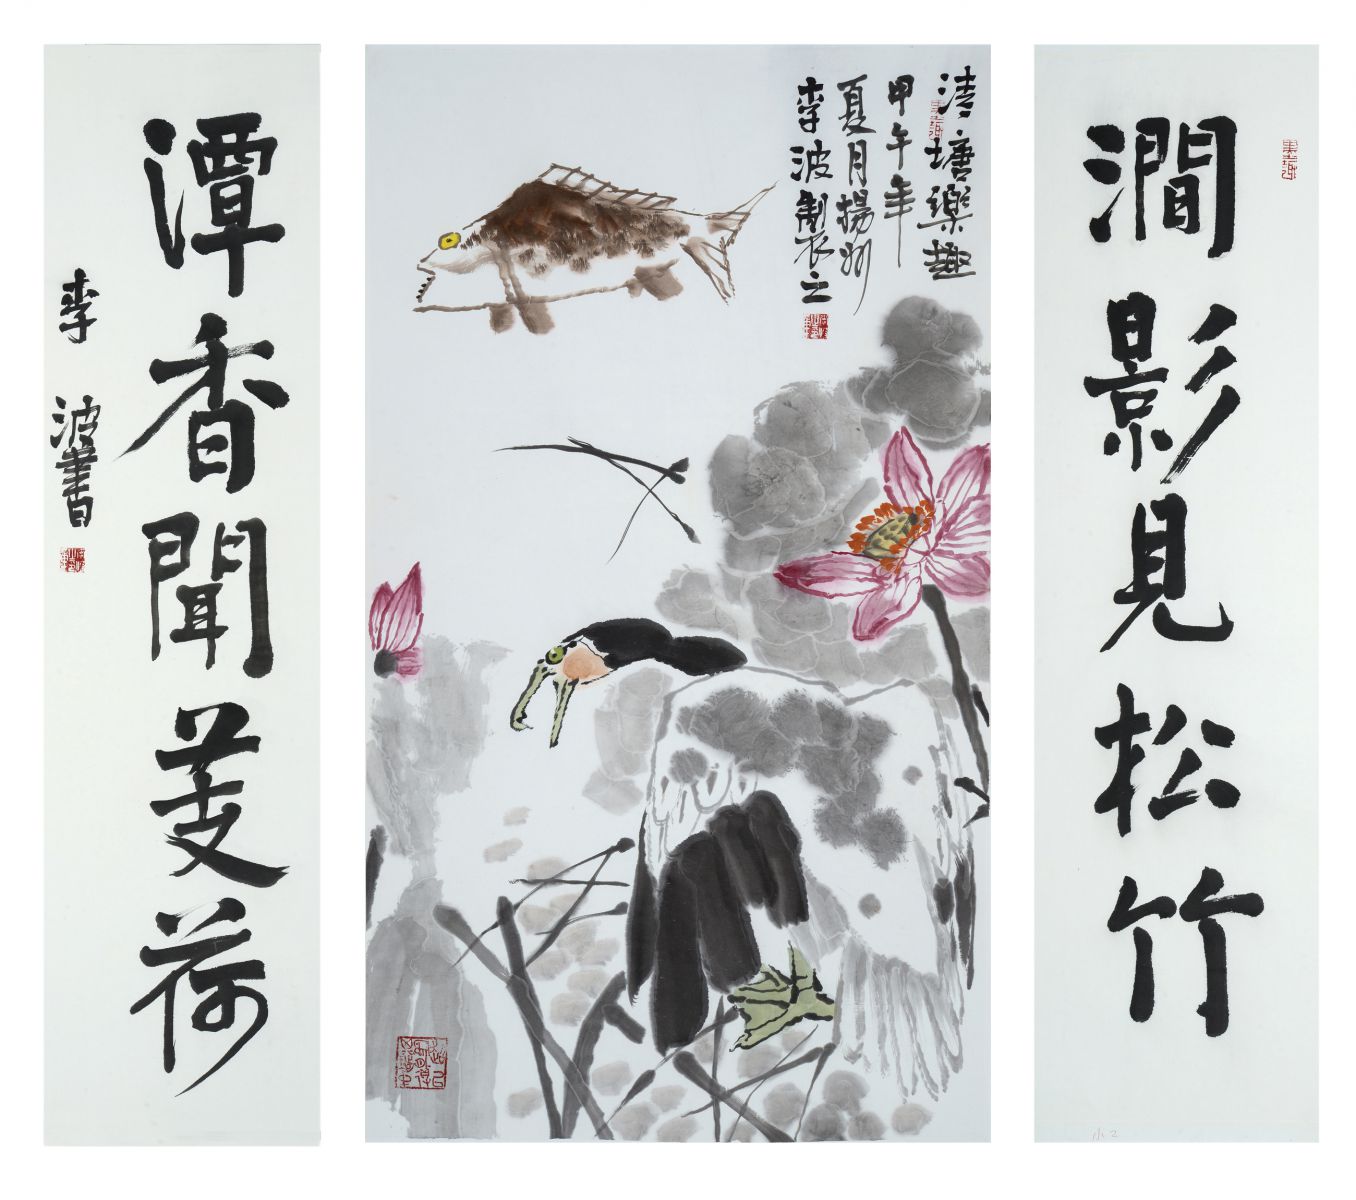 澗影見松竹
清塘樂趣
甲午年
夏月揚州
李波製之
潭香聞芰荷
李波書